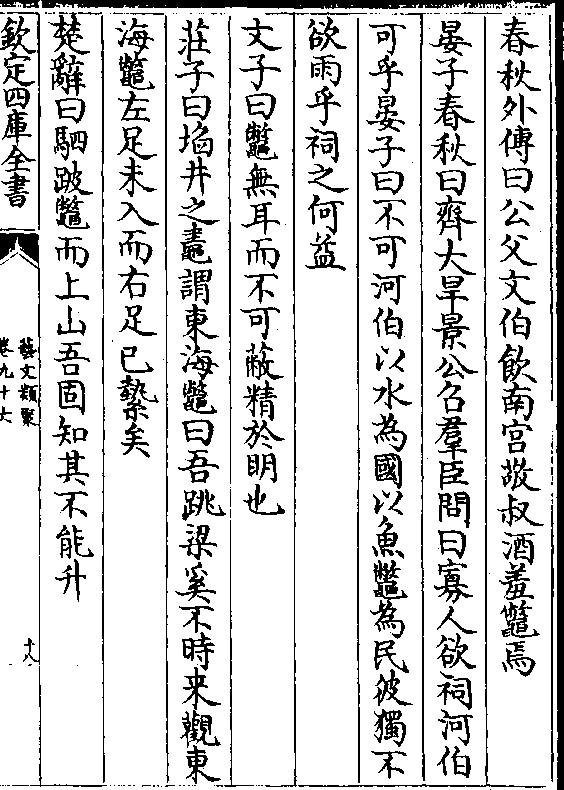 春秋外傳曰公父文伯飲南宮敬叔酒羞鼈焉
晏子春秋曰齊大旱景公召羣臣問曰寡人欲祠河伯
可乎晏子曰不可河伯以水為國以魚鼈為民彼獨不
欲雨乎祠之何益
文子曰鼈無耳而不可蔽精於明也
莊子曰埳井之鼃謂東海鼈曰吾跳梁奚不時来觀東
海鼈左足未入而右足已縶矣
楚辭曰駟跛鼈而上山吾固知其不能升
欽定四庫全書
藝文類聚
卷九十六
十八